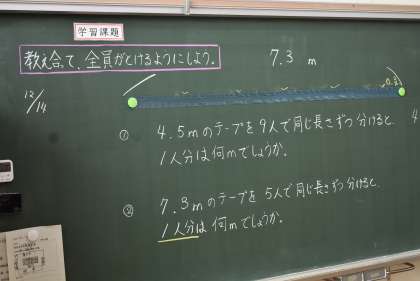 学習課題
教え合って、全員がとけるようにしよう。
12/14
7.3 m
① 4.5mのテープを9人で同じ長さずつ分けると、
1人分は何mでしょうか。
4
② 7.3mのテープを5人で同じ長さずつ分けると、
1人分は何mでしょうか。